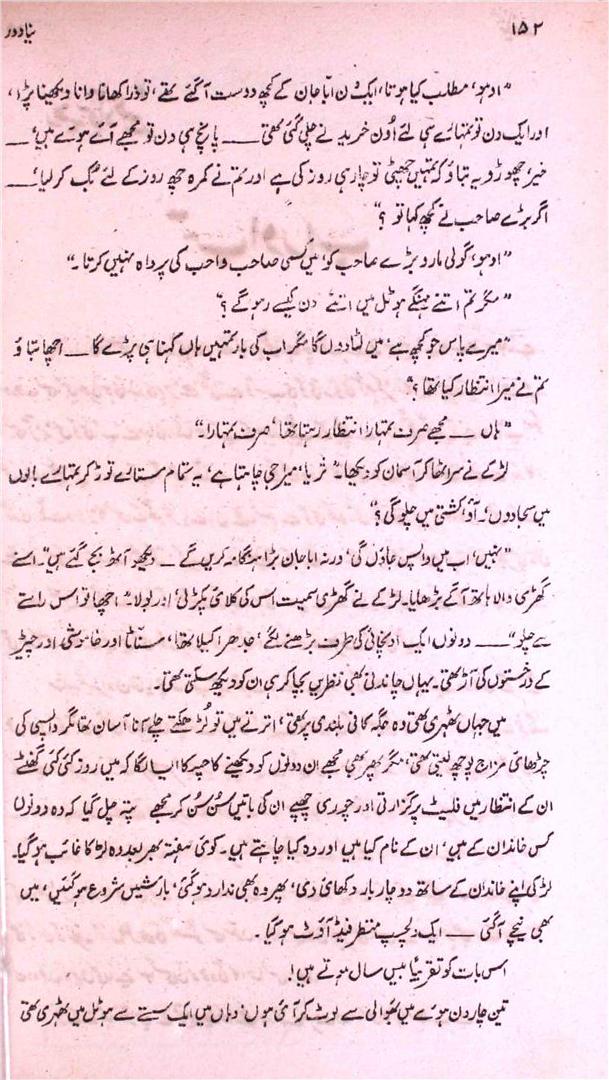 ۱۵۲
نیا دور
"اوہو، مطلب کیا ہوتا، ایک دن ابا جان کے کچھ دوست آ گئے تھے، تو ذرا کھانا وانا دیکھینا پڑا،
اور ایک دن تو تمہارے ہی لئے اُون خریدنے چلی گئی تھی ـــــ پانچ ہی دن تو مجھے آئے ہوئے ہیں، ــــ
خیر، چھوڑو یہ بتاؤ کہ تمہیں چھٹی تو چار ہی روز کی ہے اور تم نے کمرہ چھ روز کے لئے بُک کر لیا، ــــ
اگر بڑے صاحب نے کچھ کہا تو؟"
"اوہو، گولی مارو بڑے صاحب کو، میں کسی صاحب واحب کی پرواہ نہیں کرتا۔"
"مگر تم اتنے مہنگے ہوٹل میں اتنے دن کیسے رہو گے؟"
"میرے پاس جو کچھ ہے، میں لٹا دوں گا مگر اب کی بار تمہیں ہاں کہنا ہی پڑے گا ــــ اچھا بتاؤ
تم نے میرا انتظار کیا تھا؟"
"ہاں ــــ مجھے صرف تمہارا انتظار رہتا تھا، صرف تمہارا۔"
لڑکے نے سر اٹھا کر آسمان کو دیکھا۔ "ثریا، میرا جی چاہتا ہے، یہ تمام ستارے توڑ کر تمہارے بالوں
میں سجا دوں، ۔ آؤ، کشتی میں چلو گی؟"
"نہیں، اب میں واپس جاؤں گی، ورنہ ابا جان بڑا ہنگامہ کریں گے ــــ دیکھو آٹھ بج گئے ہیں"۔ اسنے
گھڑی والا ہاتھ آگے بڑھایا۔ لڑکے نے گھڑی سمیت اس کی کلائی پکڑ لی، اور بولا۔ "اچھا تو اس راستے
سے چلو" ــــ دونوں ایک اونچائی کی طرف بڑھنے لگے، جدھر اکیلا تھا، سناٹا اور خاموشی اور چیڑ
کے درختوں کی آڑ تھی۔ یہاں چاندنی بھی نظریں بچا کر ہی ان کو دیکھ سکتی تھی۔
میں جہاں ٹھہری تھی وہ جگہ کافی بلندی پر تھی، اترنے میں تو لڑھکتے چلے آنا آسان تھا مگر واپسی کی
چڑھائی مزاج پوچھ لیتی تھی، مگر پھر بھی مجھے ان دونوں کو دیکھنے کا چسکا ایسا لگا کہ میں روز کئی کئی گھنٹے
ان کے انتظار میں فلیٹ پر گزارتی اور چوری چھپے ان کی باتیں سُن سُن کر مجھے پتہ چل گیا کہ وہ دونوں
کس خاندان کے ہیں، ان کے نام کیا ہیں اور وہ کیا چاہتے ہیں۔ کوئی ہفتہ بھر بعد وہ لڑکا غائب ہو گیا۔
لڑکی اپنے خاندان کے ساتھ دو چار بار دکھائی دی، پھر وہ بھی ندارد ہو گئی، بارشیں شروع ہو گئیں، میں
بھی نیچے آ گئی ــــ ایک دلچسپ منظر فیڈ آؤٹ ہو گیا۔
اس بات کو تقریباً بیس سال ہوتے ہیں!
تین چار دن ہوئے میں بھوالی سے لوٹ کر آئی ہوں، وہاں میں ایک سستے سے ہوٹل میں ٹھہری تھی